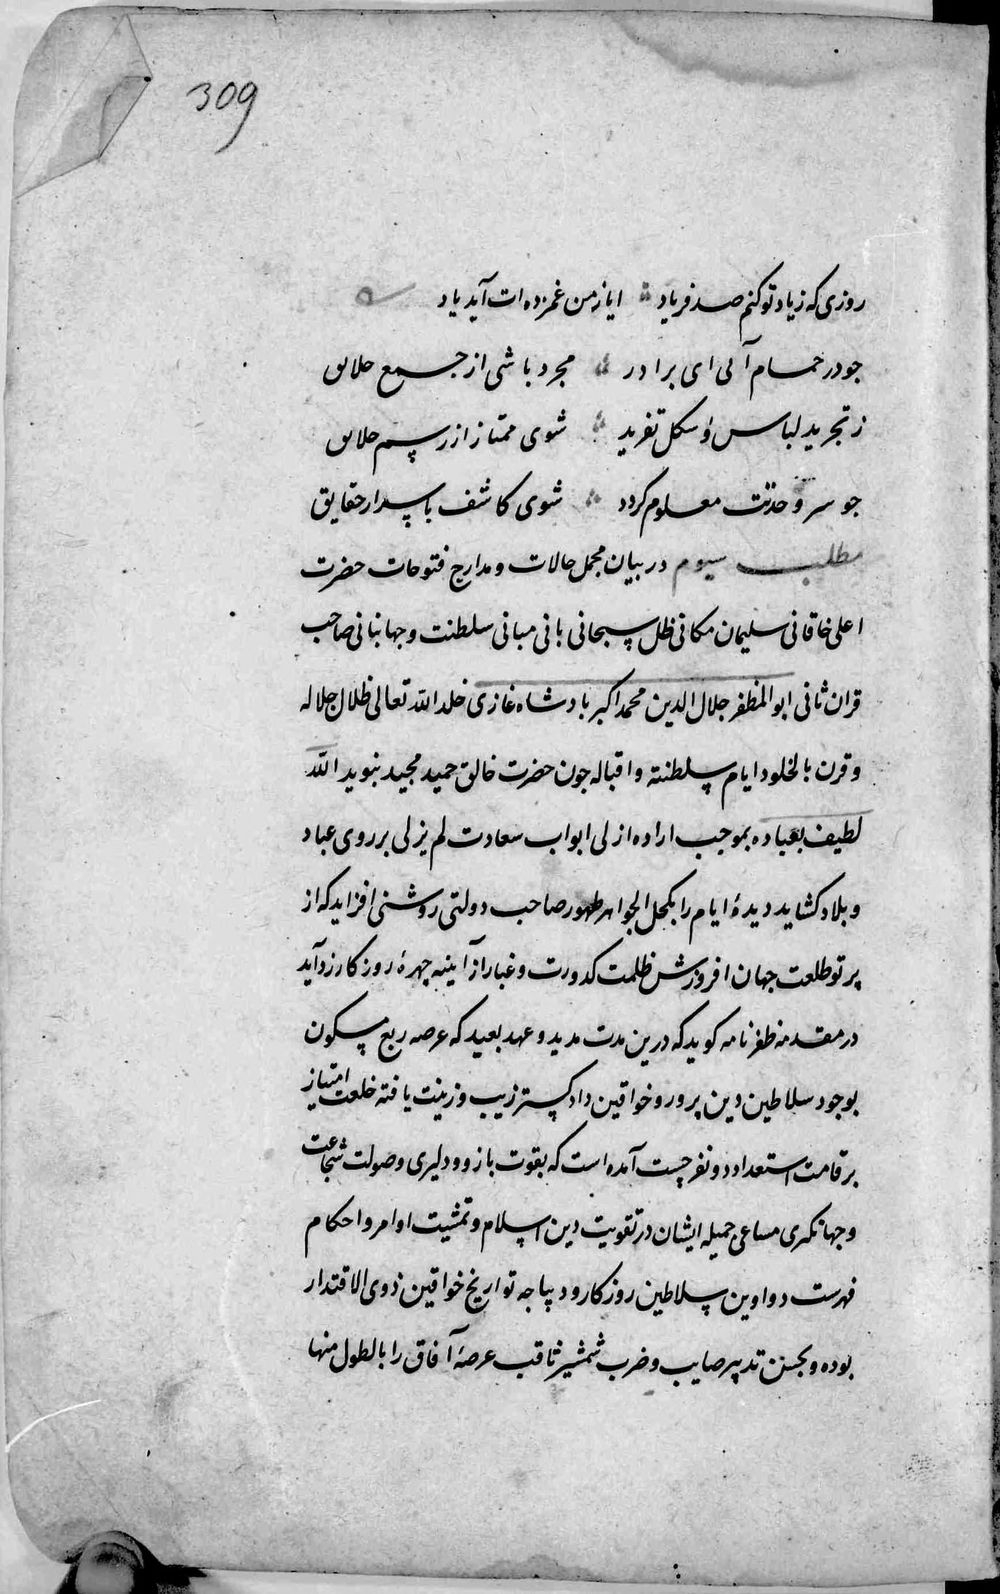 309
روزی که زیاد تو کنم صد فریاد ایا ز من غمزده ات آید یاد
جو در حمام آئی ای برادر مجرد باشی از جمیع علایق
ز تجرید لباس و شکل تفرید شوی ممتاز از رسم خلایق
جو سر وحدتت معلوم کردد شوی کاشف باسرار حقایق
مطلب سیوم در بیان مجمل حالات و مدارج فتوحات حضرت
اعلی خاقانی سلیمان مکانی ظل سبحانی بانی مبانی سلطنت و جهانبانی صاحب
قران ثانی ابو المظفر جلال الدین محمد اکبر بادشاه غازی خلد الله تعالی ظلال جلاله
و قرن بالخلود ایام سلطنته و اقباله جون حضرت خالق حمید مجید بنوید الله
لطیف بعباده بموجب اراده ازلی ابواب سعادت لم یزلی بر روی عباد
و بلاد کشاید دیدهٔ ایام را بکحل الجواهر ظهور صاحب دولتی روشنی افزاید که از
پرتو طلعت جهان افروزش ظلمت کدورت و غبار از آینیه جهرهٔ روزکار زدآید
در مقدمه ظفرنامه کوید که درین مدت مدید و عهد بعید که عرصه ربع مسکون
بوجود سلاطین دین پرور و خواقین دادکستر زیب و زینت یافته خلعت امتیاز
بر قامت استعداد دو نفر چست آمده است که بقوت بازو و دلیری وصولت شجاعت
و جهانکیری مساعی جمیله ایشان در تقویت دین اسلام و تمشیت اوامر و احکام
فهرست دواوین سلاطین روزکار و دیباجه تواریخ خواقین ذوی الاقتدار
بوده و بحسن تدبیر صایب و ضرب شمشیر ثاقب عرصهٔ آفاق را بالطول منها